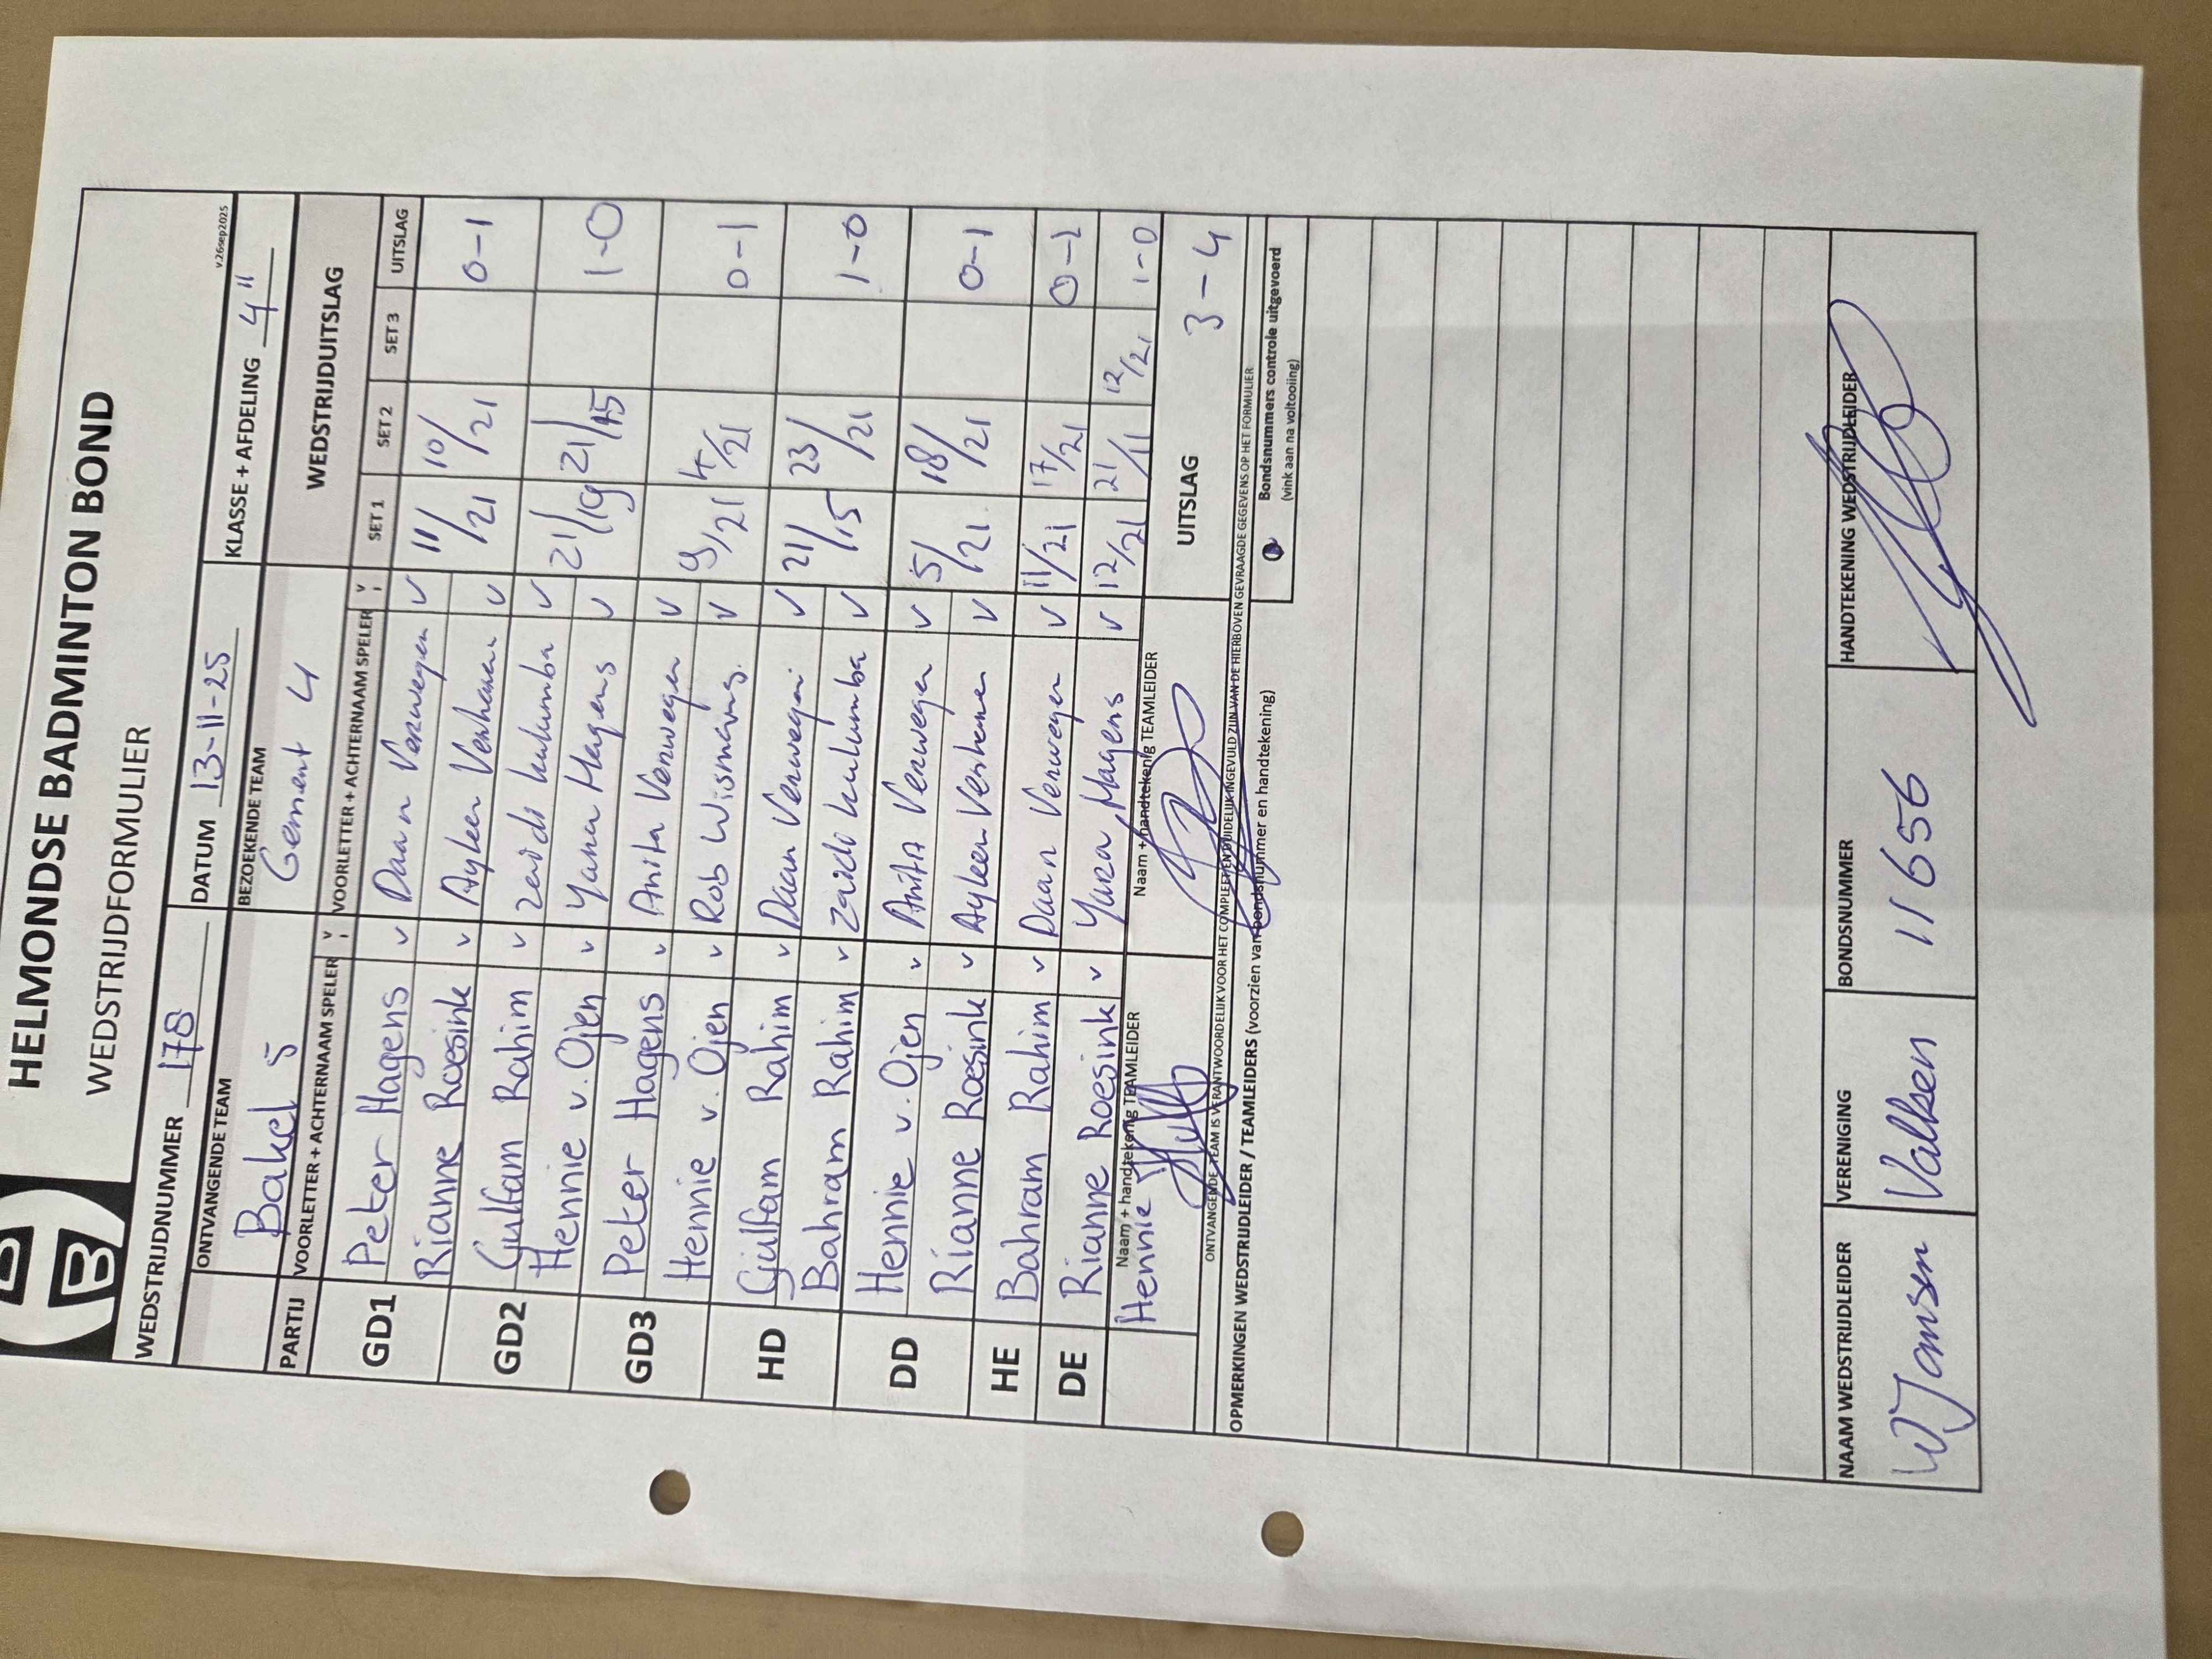 HELMONDSE BADMINTON BOND
WEDSTRIJDFORMULIER
v.26sep2025
WEDSTRIJDNUMMER 178 DATUM 13-11-25 KLASSE + AFDELING 4"
ONTVANGENDE TEAM BEZOEKENDE TEAM WEDSTRIJDUITSLAG
Bakel 5 Gement 4
PARTIJ VOORLETTER + ACHTERNAAM SPELER V VOORLETTER + ACHTERNAAM SPELER V SET 1 SET 2 SET 3 UITSLAG
GD1 Peter Hagens v Daan Verwegen v 11/21 10/21 0-1
Rianne Roesink v Ayleen Verhoeven v
GD2 Gulfam Rahim v v 21/19 21/15 1-0
Hennie v. Ojen v Yara Hagens v
GD3 Peter Hagens v Anita Verwegen v 9/21 4/21 0-1
Hennie v. Ojen v Rob v
HD Gulfam Rahim v Daan Verwegen v 21/15 23/21 1-0
Bahram Rahim v v
DD Hennie v. Ojen v Anita Verwegen v 5/21 18/21 0-1
Rianne Roesink v Ayleen Verhoeven v
HE Bahram Rahim v Daan Verwegen v 11/21 17/21 0-1
DE Rianne Roesink v Yara Hagens v 12/21 21/11 12/21 1-0
Naam + handtekenig TEAMLEIDER Naam + handtekenig TEAMLEIDER UITSLAG 3-4
Hennie
ONTVANGENDE TEAM IS VERANTWOORDELIJK VOOR HET COMPLEET EN DUIDELIJK INGEVULD ZIJN VAN DE HIERBOVEN GEVRAAGDE GEGEVENS OP HET FORMULIER
OPMERKINGEN WEDSTRIJDLEIDER / TEAMLEIDERS (voorzien van bondsnummer en handtekening) Bondsnummers controle uitgevoerd
(vink aan na voltooiing)
NAAM WEDSTRIJDLEIDER VERENIGING BONDSNUMMER HANDTEKENING WEDSTRIJDLEIDER
W Jansen Valksen 11656